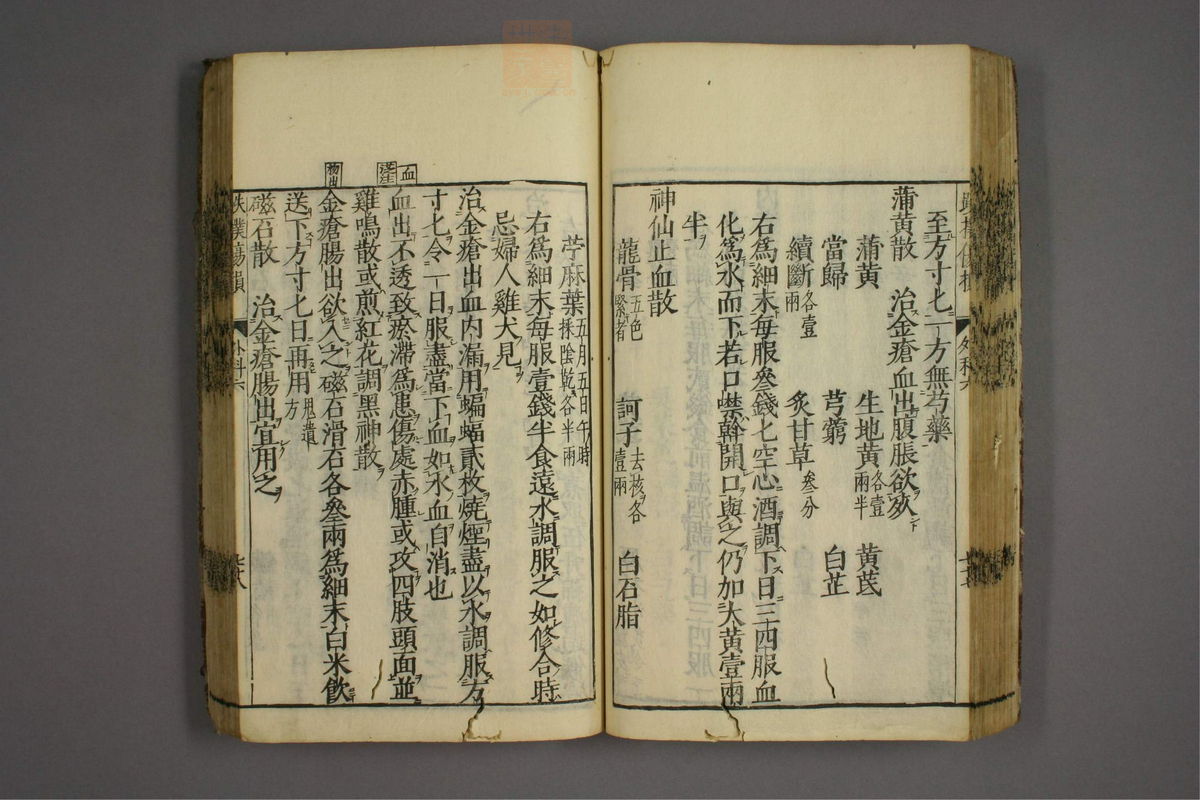 至方寸匕一方無芍藥
蒲黄散　治金瘡血出腹脹欲死
蒲黄　生地黄各壹兩半　黄芪
當歸　芎藭　白芷
續斷各壹兩　炙甘草叄分
右爲細末每服叄錢匕空心酒調下日三四服血
化爲水而下若口噤斡開口與之仍加大黄壹兩
半
神仙止血散
龍骨五色緊者　訶子去核各壹兩　白石脂
苧麻葉五月五日午時採陰乾各半兩
右爲細末每服壹錢半食遠水調服之如修合時
忌婦人雞犬見
治金瘡出血内漏用蝙蝠貳枚燒煙盡以水調服方
寸匕令一日服盡當下血如水血自消也
血出不透致瘀滯爲患傷處赤腫或攻四肢頭面並
雞鳴散或煎紅花調黑神散
金瘡腸出欲入之磁石滑石各叄兩爲細末白米飲
送下方寸匕日再用鬼遺方
磁石散　治金瘡腸出宜用之
外科六